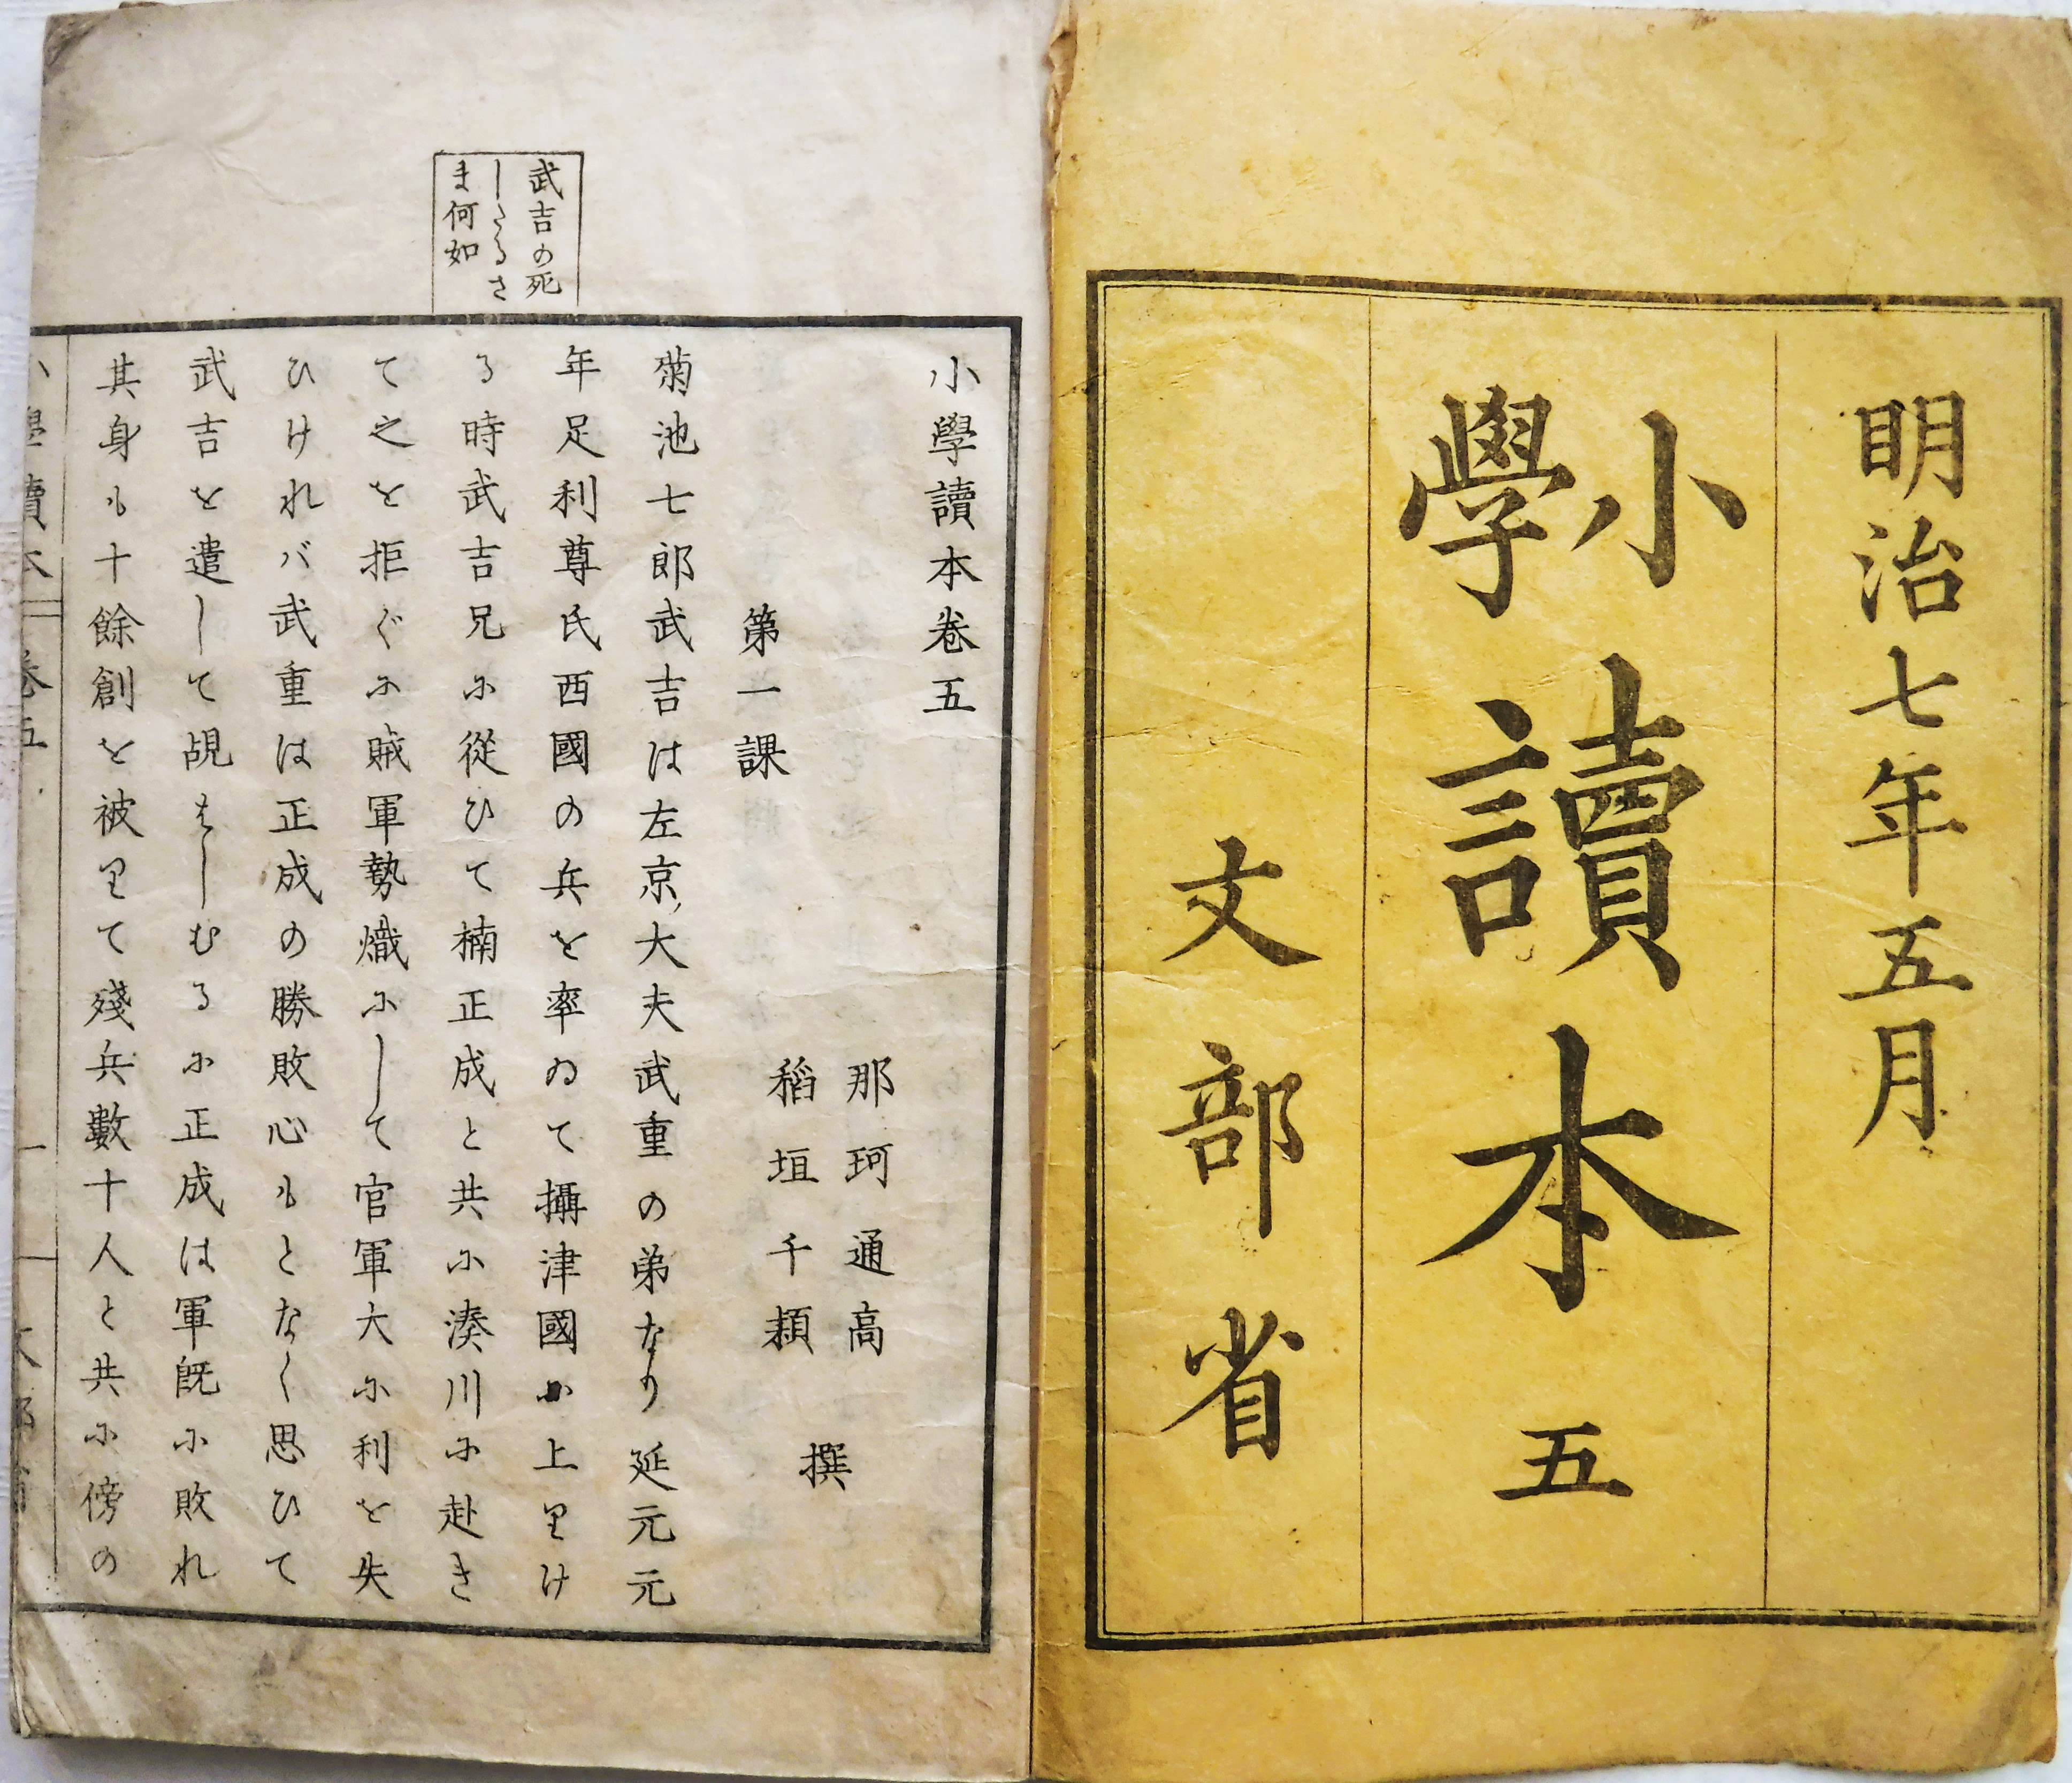 明治七年五月
小學讀本 五
文部省
小學讀本卷五
那珂通高
稻垣千穎
撰
第一課
菊池七郎武吉は左京大夫武重の弟なり延元元
年足利尊氏西國の兵を率ゐて攝津國に上りけ
る時武吉兄に從ひて楠正成と共に湊川に赴き
て之を拒ぐに賊軍勢熾にして官軍大に利を失
ひけれバ武重は正成の勝敗心もとなく思ひて
武吉を遣して覘はしむるに正成は軍既に敗れ
其身も十餘創を被りて殘兵數十人と共に傍の
武吉の死
したるさ
ま何如
小學讀本 卷五 一